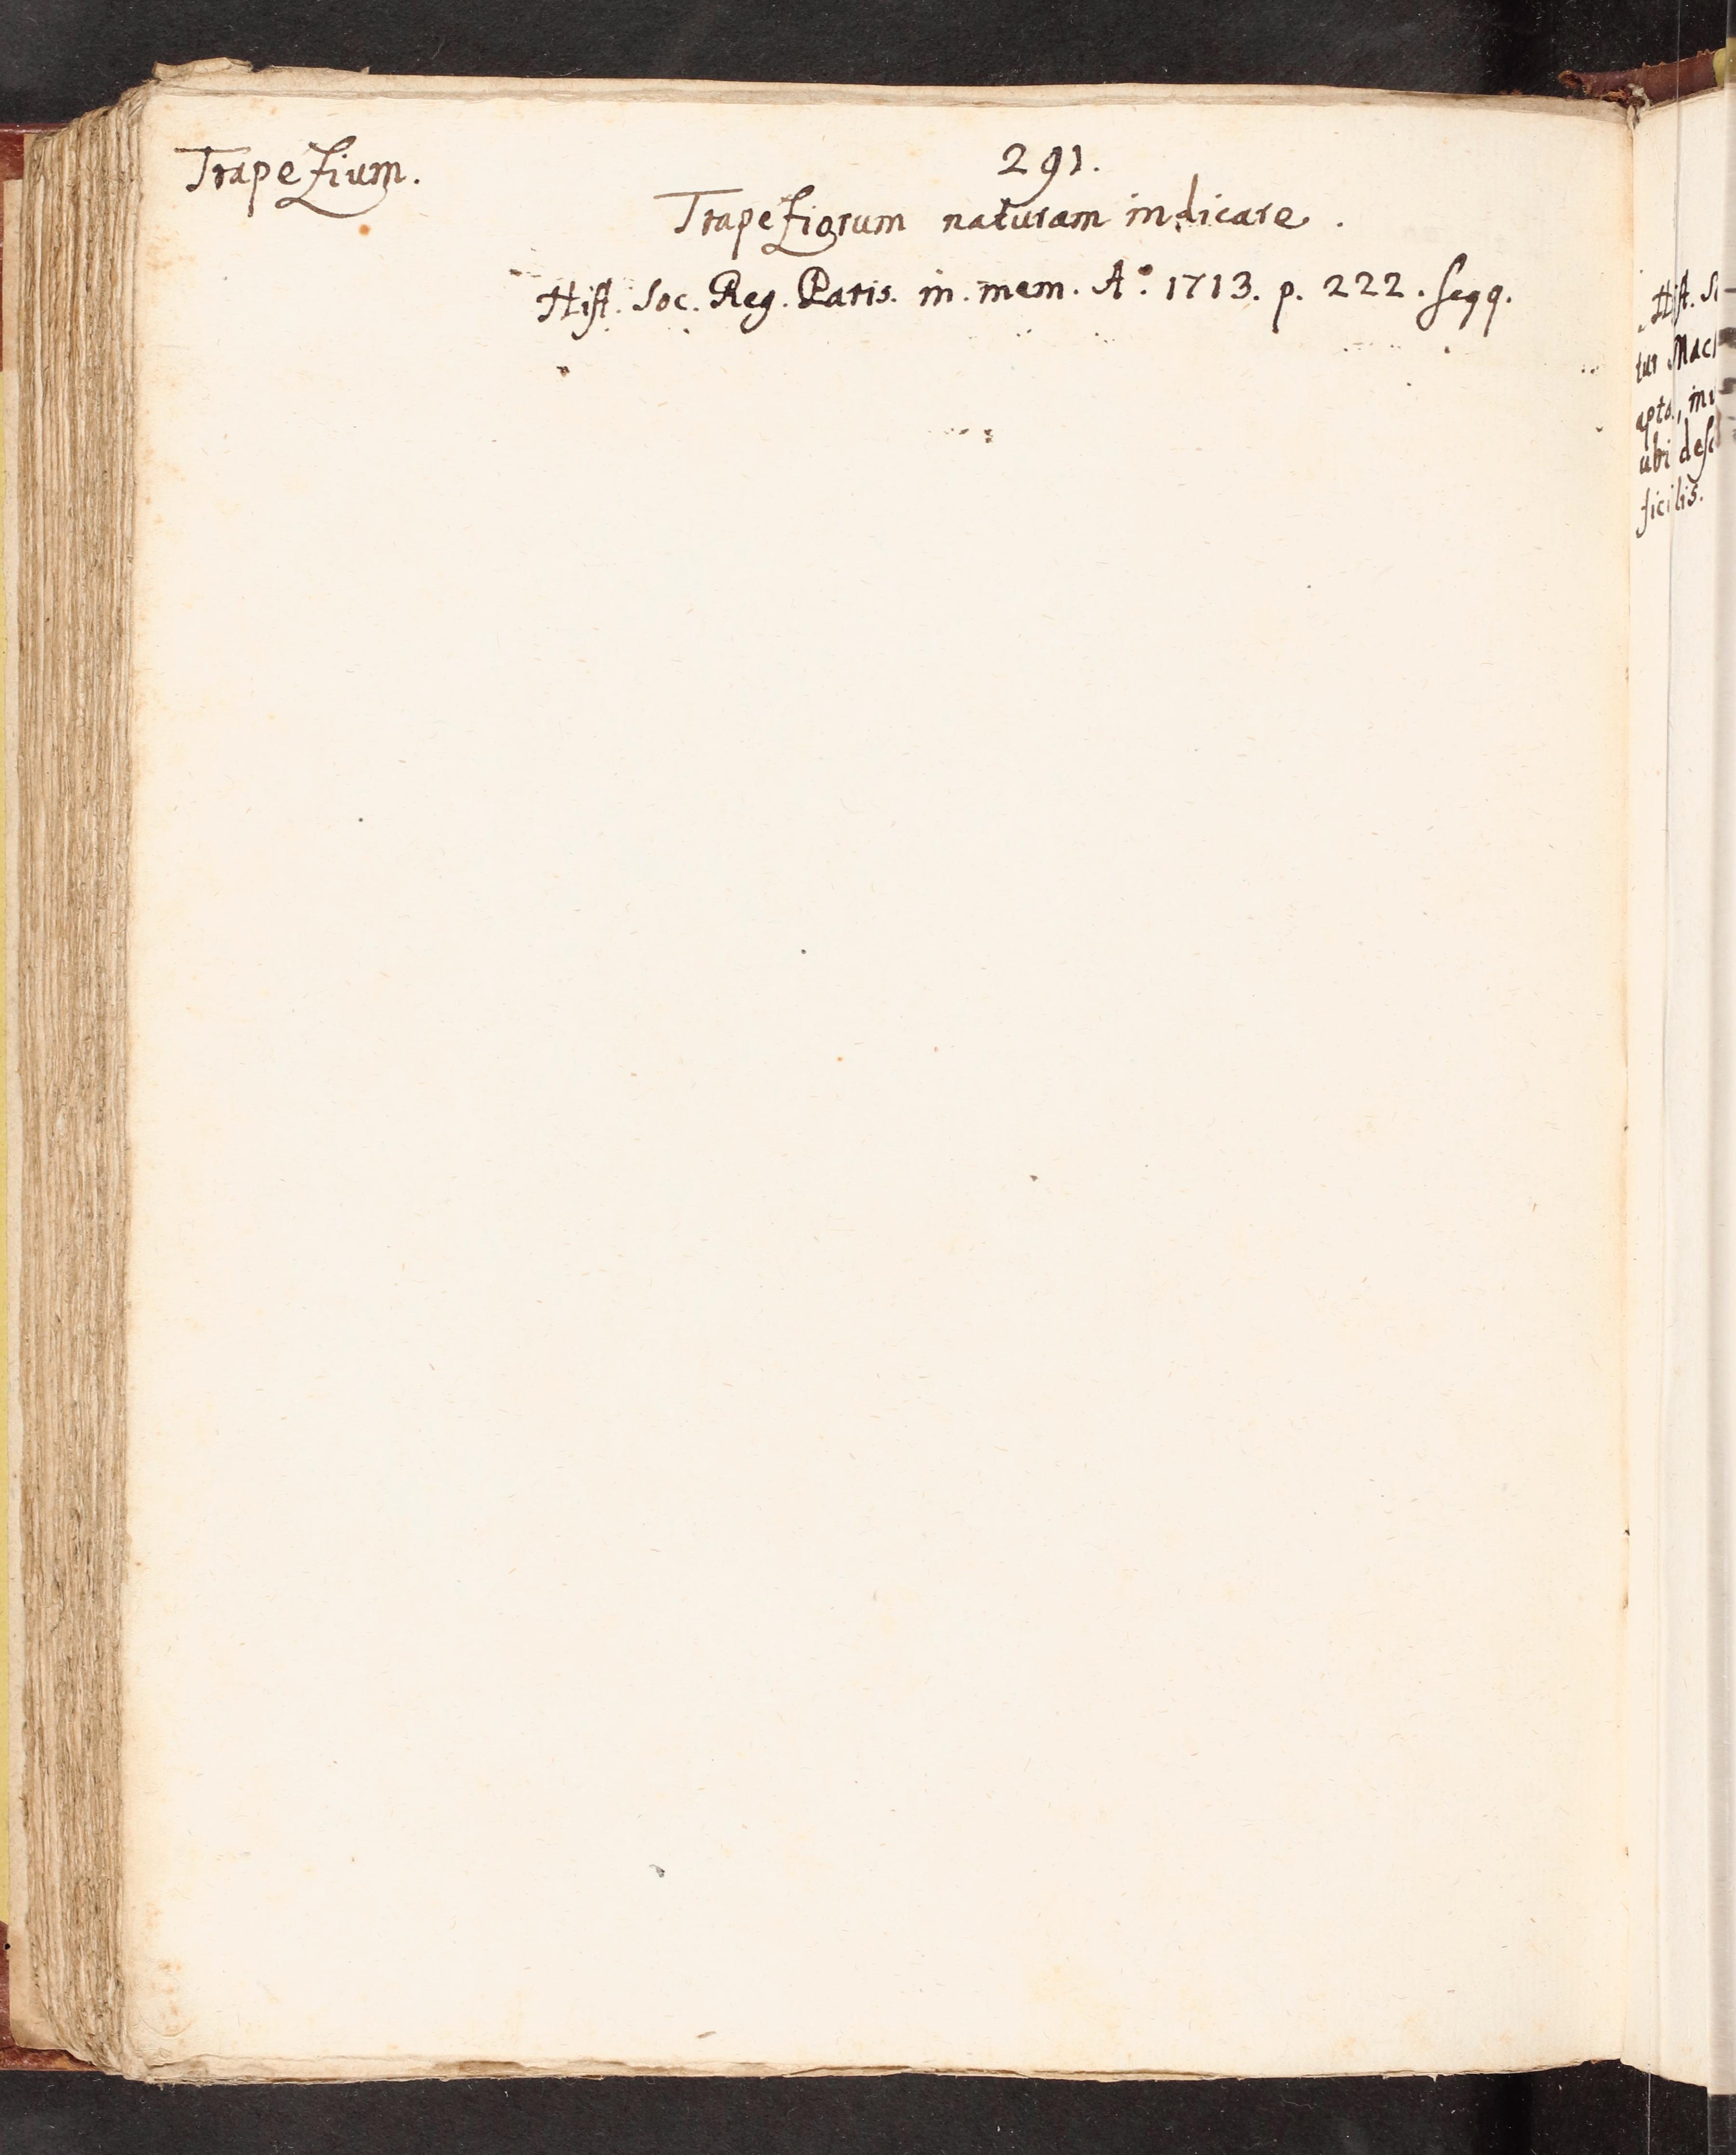 Trapezium.
291.
Trapeziorum naturam indicare.
Hist. Soc. Reg. Paris. in. mem. A°. 1713. p. 222. seqq.
Hist.
tur
apta,
ubi
ficilis.